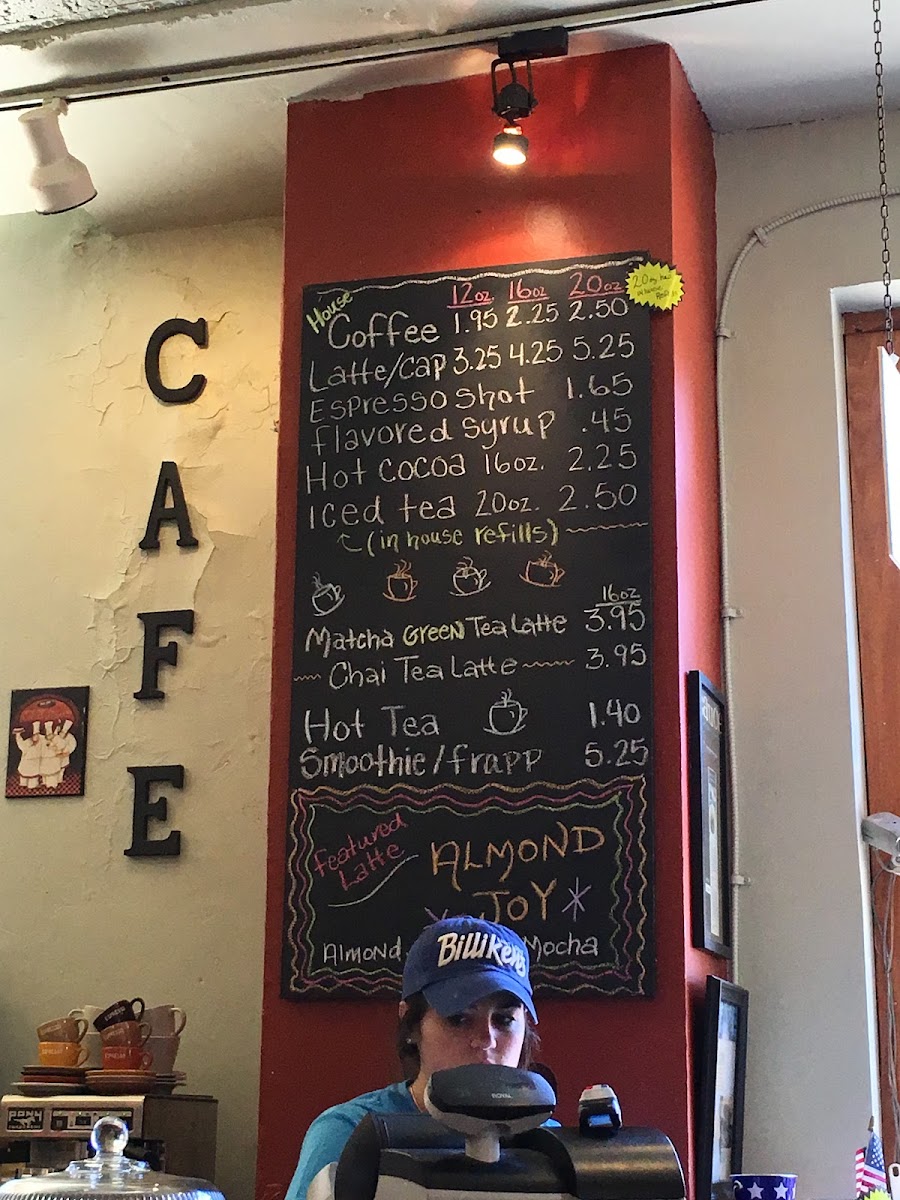 CAFE
House
12oz 16oz 20oz
Coffee 1.95 2.25 2.50
Latte/Cap 3.25 4.25 5.25
Espresso shot 1.65
flavored syrup .45
Hot cocoa 16oz. 2.25
Iced tea 20oz. 2.50
(in house refills)
16oz
Matcha GREEN Tea Latte 3.95
Chai Tea Latte 3.95
Hot Tea 1.40
Smoothie/frapp 5.25
featured
Latte
ALMOND
JOY
Almond Mocha
Billikens
ROYAL
PONY